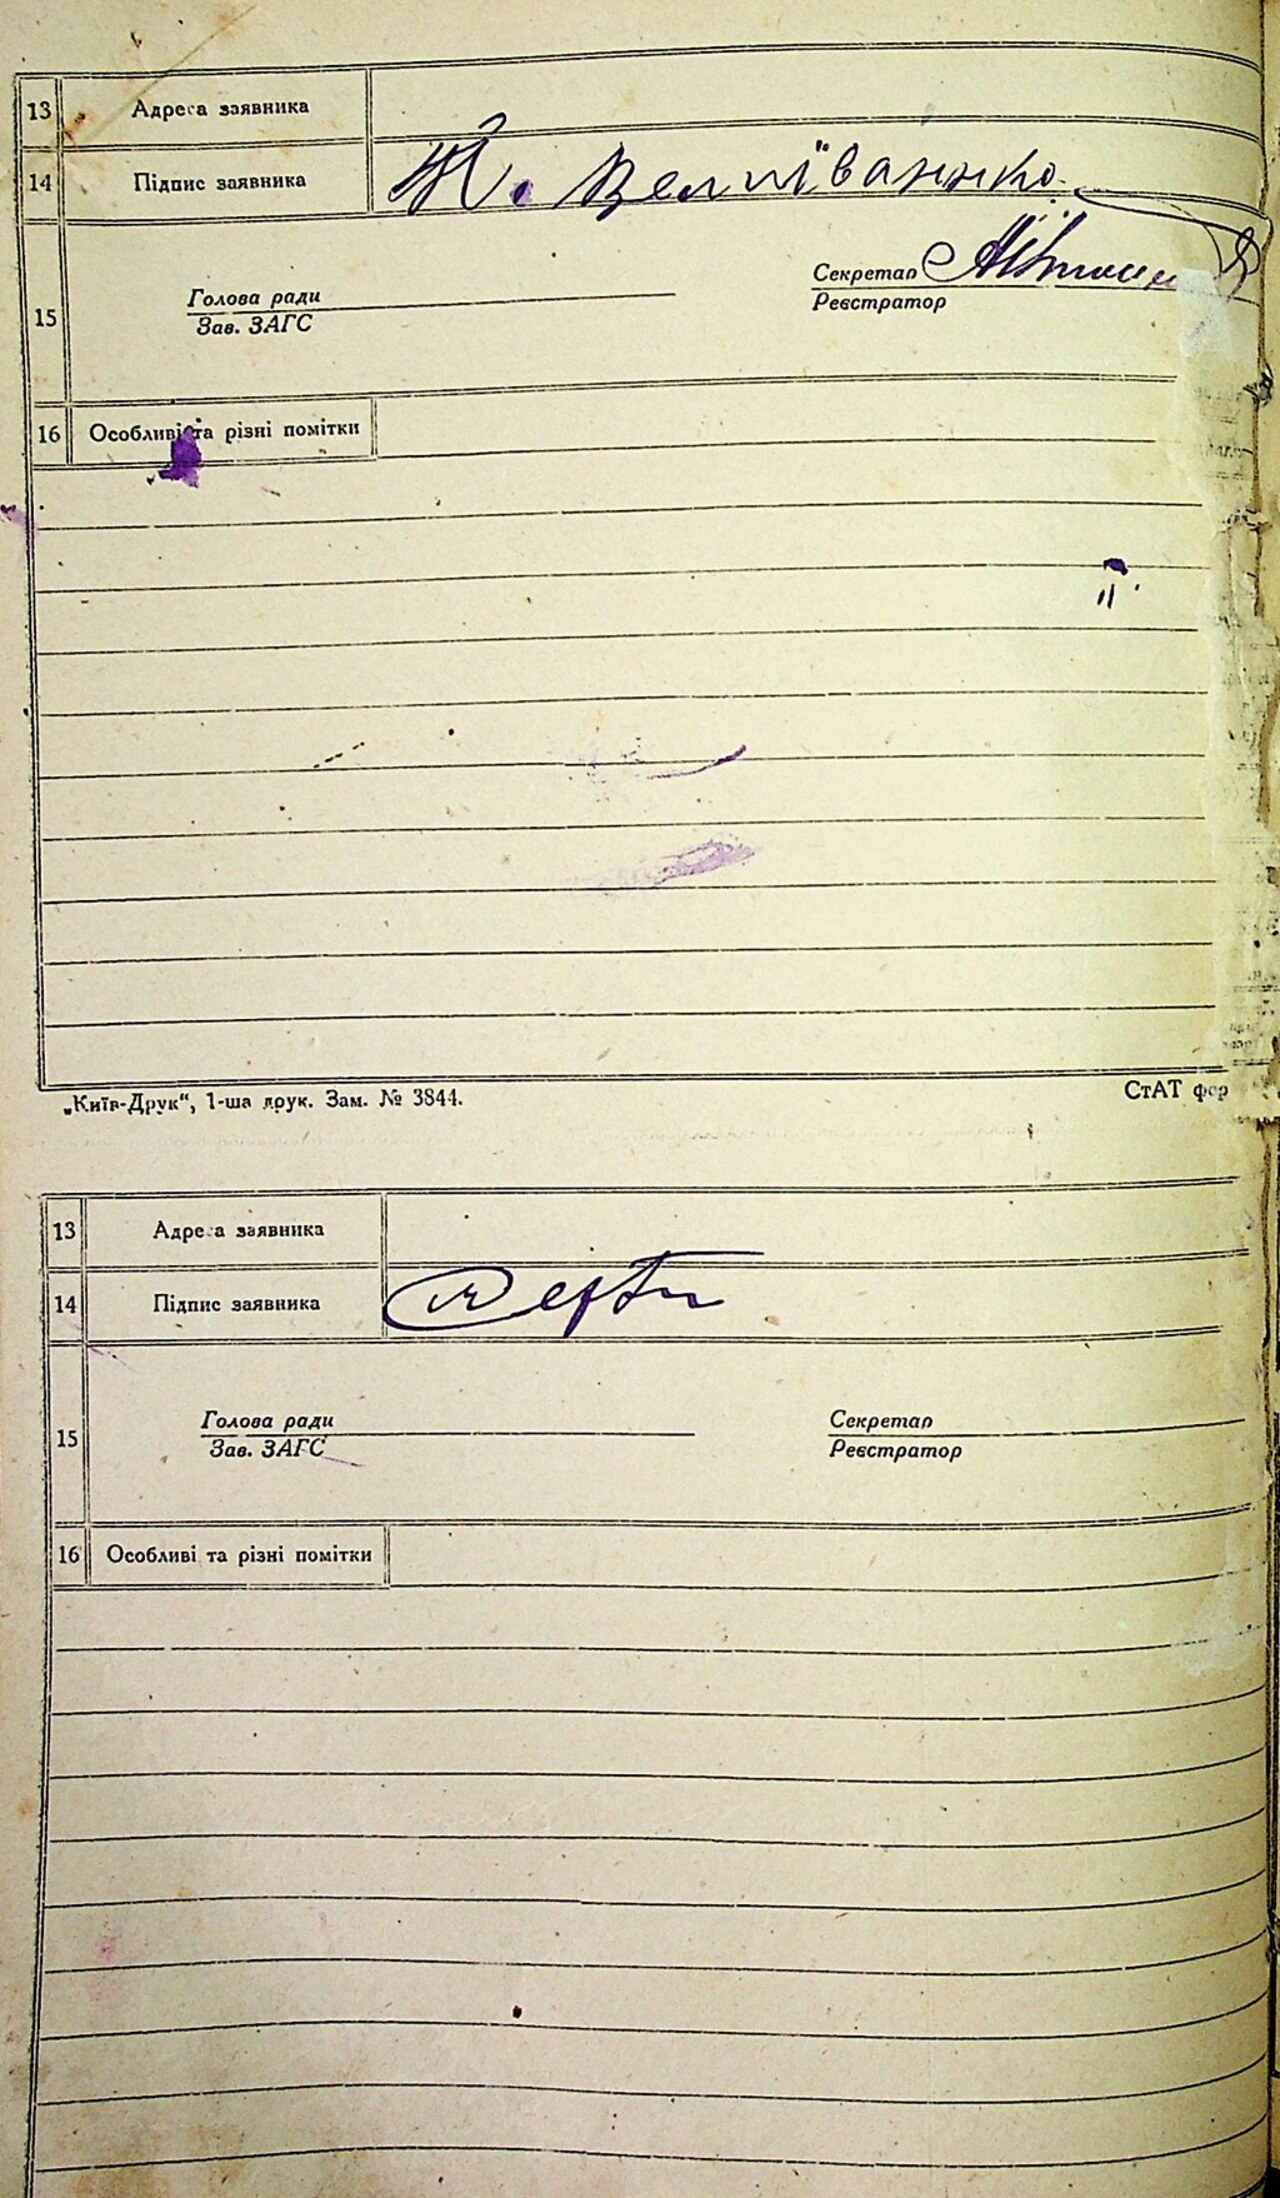 13 Адреса заявника
14 Підпис заявника
15
Голова ради
Зав. ЗАГС
Секретар
Реєстратор
16 Особливі та різні помітки
„Київ-Друк“, 1-ша друк. Зам. № 3844.
СтАТ фор
13 Адреса заявника
14 Підпис заявника
15
Голова ради
Зав. ЗАГС
Секретар
Реєстратор
16 Особливі та різні помітки